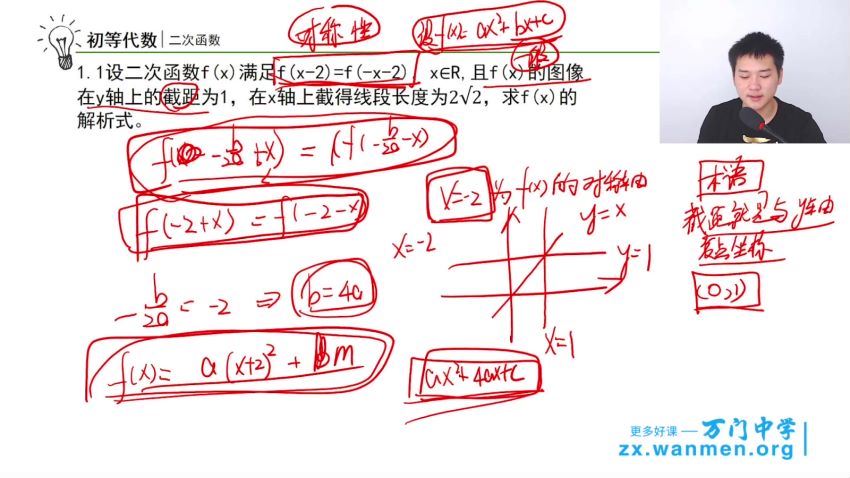 对称性
设f(x)=ax²+bx+c
初等代数 | 二次函数
1.1设二次函数f(x)满足f(x-2)=f(-x-2)，x∈R,且f(x)的图像
在y轴上的截距为1，在x轴上截得线段长度为2√2，求f(x)的
解析式。
-b/2a+x) = f(-b/2a-x)
f(-2+x) = f(-2-x)
X=-2 为f(x)的对称轴
术语
截距就是与y轴
交点坐标
(0,1)
y=x
x=-2
y=1
-b/2a = -2 ⇒ b=4a
x=1
f(x)= a(x+2)² + m
ax²+4ax+c
更多好课 — 万门中学
zx.wanmen.org